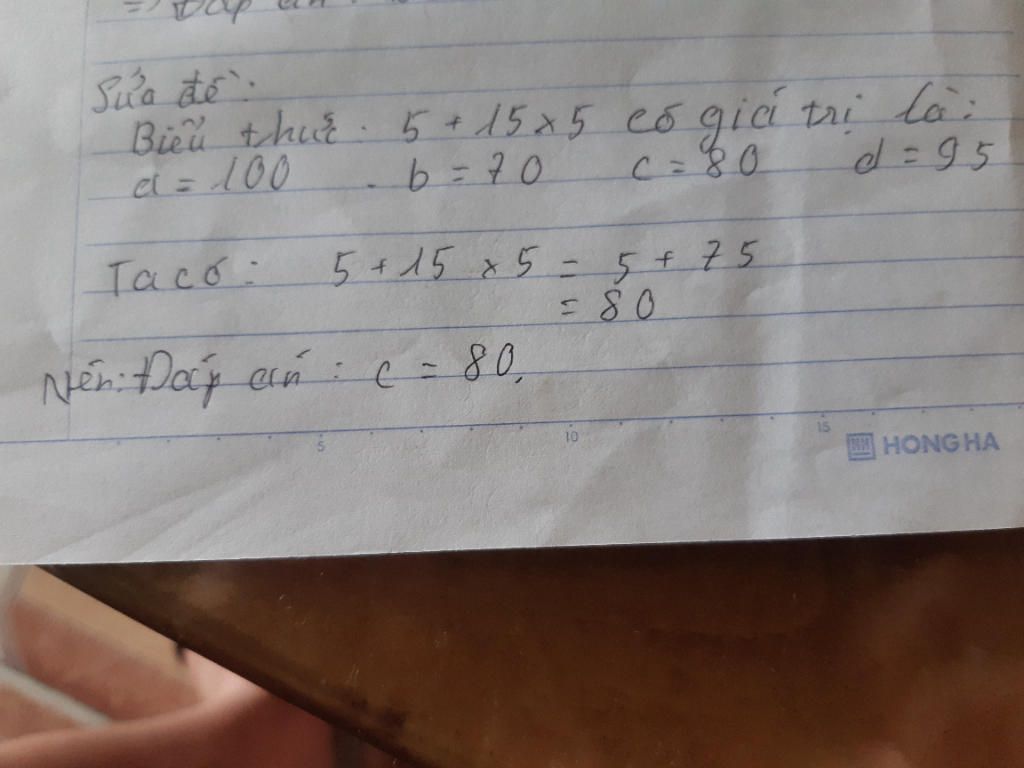 => Đáp án :
Sửa đề:
Biểu thức. 5 + 15 x 5 có giá trị là:
a = 100 . b = 70 c = 80 d = 95
Ta có: 5 + 15 x 5 = 5 + 75
= 80
Nên: Đáp án : c = 80.
5 10 15
HONG HA